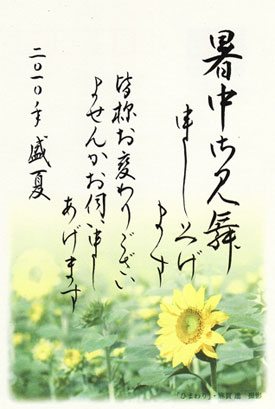 暑中お見舞
申し上げ
ます
皆様お変わりござい
ませんかお伺い申し
あげます
二〇一〇年 盛夏